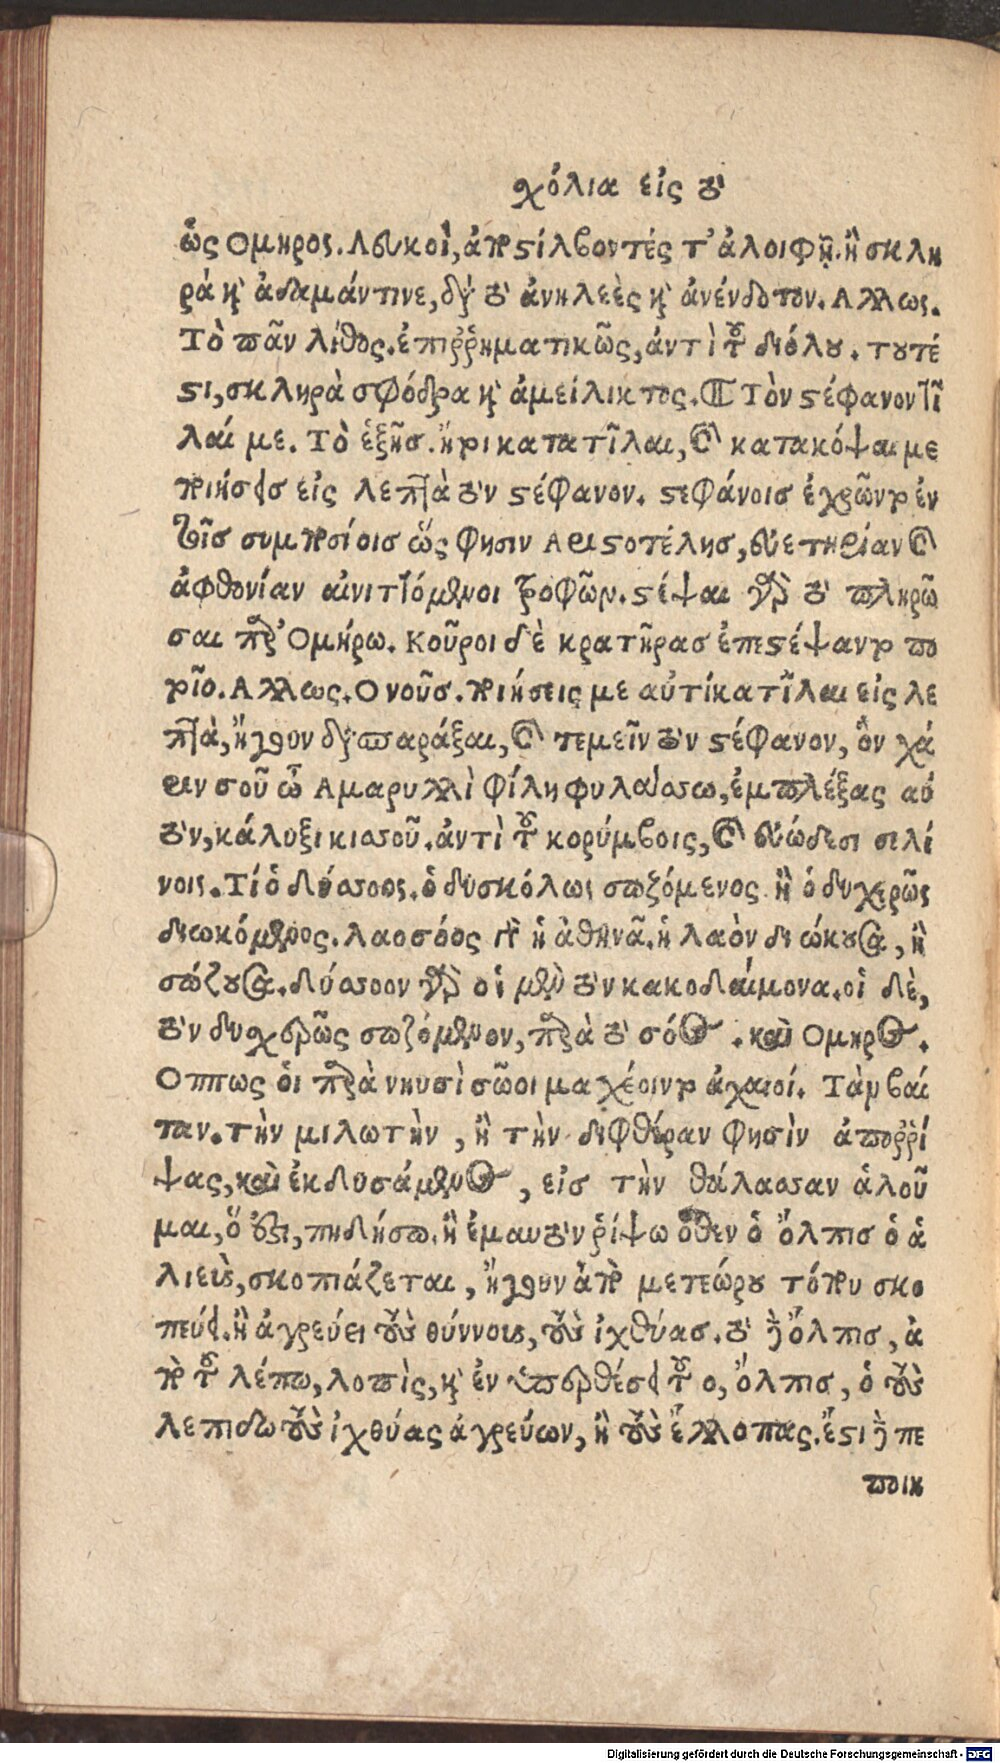 χόλια εἰς τὸ
ὡς Ομηρος. Λευκοὶ, ἀποστίλβοντές τ' ἀλοιφῇ. ἢ σκλη
ρὰ καὶ ἀδαμάντινε, διὰ τὸ ἀνηλεὲς καὶ ἀνένδοτον. Αλλως.
Τὸ πᾶν λίθος. ἐπιῤῥηματικῶς, ἀντὶ τοῦ διόλου. τουτέ
στι, σκληρὰ σφόδρα καὶ ἀμείλικτος. ¶ Τὸν στέφανον τῖ
λαί με. Τὸ ἑξῆσ. ἤτοι κατατῖλαι, καὶ κατακόψαι με
ποιήσεισ εἰς λεπτὰ τὸν στέφανον. στεφάνοισ ἐχρῶντο ἐν
τοῖσ συμποσίοισ ὥς φησιν Αριστοτέλησ, εὐετηρίαν καὶ
ἀφθονίαν αἰνιττόμενοι τροφῶν. στέψαι γὰρ τὸ πληρῶ
σαι παρ' Ομήρω. Κοῦροι δὲ κρατῆρασ ἐπεστέψαντο πο
τοῖο. Αλλως. Ο νοῦσ. ποιήσεις με αὐτίκα τῖλαι εἰς λε
πτὰ, ἤγουν διασπαράξαι, καὶ τεμεῖν τὸν στέφανον, ὃν χά
ριν σοῦ ὦ Αμαρυλλὶ φίλη φυλάσσω, ἐμπλέξας αὐ
τὸν, κάλυξι κισσοῦ. ἀντὶ τοῦ κορύμβοις, καὶ εὐώδεσι σελί
νοις. Τί ὁ δύσσοος. ὁ δυσκόλως σωζόμενος ἢ ὁ δυχερῶς
διωκόμενος. λαοσόος γὰρ ἡ ἀθηνᾶ. ἡ λαὸν διώκουσα, ἢ
σώζουσα. δύσσοον γὰρ οἱ μὲν τὸν κακοδαίμονα. οἱ δὲ,
τὸν δυχερῶς σωζόμενον, παρὰ τὸ σόος. καὶ Ομηρος.
Οππως ὁι παρὰ νηυσὶ σῶοι μαχέοιντο ἀχαιοί. Τὰμ βαί
ταν. τὴν μιλωτὴν, ἢ τὴν διφθέραν φησὶν ἀποῤῥί
ψας, καὶ ἐκδυσάμενος, εἰσ τὴν θάλασσαν ἁλοῦ
μαι, ὅ ἐστι, πηδήσω. ἢ ἐμαυτὸν ῥίψω ὅθεν ὁ ὄλπισ ὁ ἁ
λιεὺς, σκοπιάζεται, ἤγουν ἀπὸ μετεώρου τόπου σκο
πεύει. ἢ ἀγρεύει τοὺς θύννους, τοὺς ἰχθύασ. τὸ δὲ ὄλπισ, ἀ
πὸ τοῦ λέπω, λοπὶς, καὶ ἐν ὑπερθέσει τοῦ ο, ὄλπισ, ὁ τοὺς
λεπιδωτοὺς ἰχθύας ἀγρεύων, ἢ τοὺς ἔλλοπας. ἔστι δὲ πε
ποιη
Digitalisierung gefördert durch die Deutsche Forschungsgemeinschaft - DFG